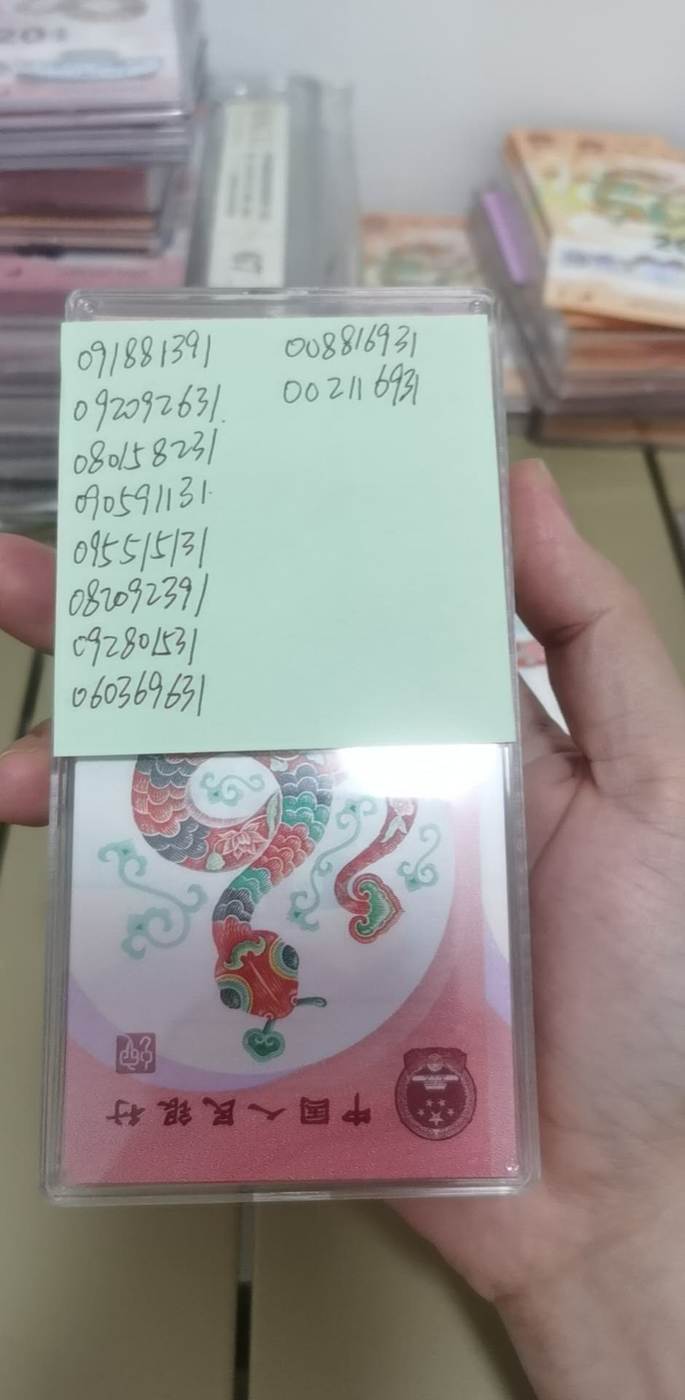 091881391
092092631
080158231
090591131
095515131
082092391
092801531
060369631
008816931
002116931
中国人民银行